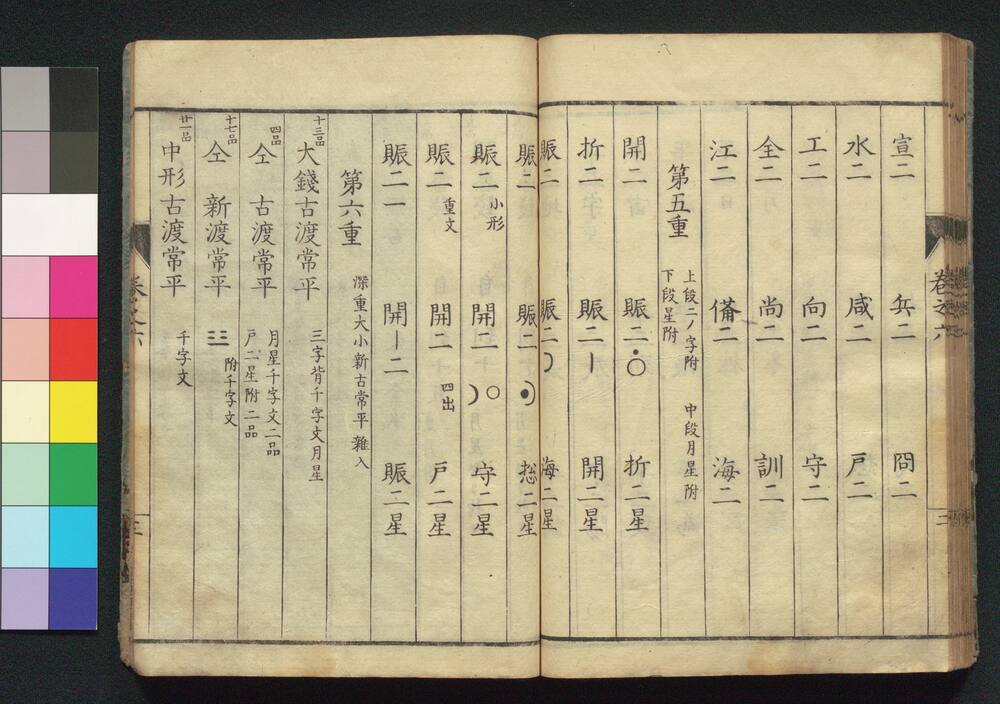 宣二 兵二 問二
水二 咸二 戸二
工二 向二 守二
全二 尚二 訓二
江二 備二 海二
第五重 上段二ノ字附 中段月星附
下段星附
開二 賑二 折二
折二 賑二 開二星
賑二 賑二 海二星
賑二 賑二 摠二星
賑二 小形 開二 守二星
賑二 重文 開二 四出 戸二星
賑二一 開一二 賑二星
第六重 深重大小新古常平雜入
十三品 大錢古渡常平 三字背千字文月星
四品 仝 古渡常平 月星千字文二品
戸二星附二品
十七品 仝 新渡常平 二三 附千字文
廿一品 中形古渡常平 千字文
卷之六
二
卷之六
三